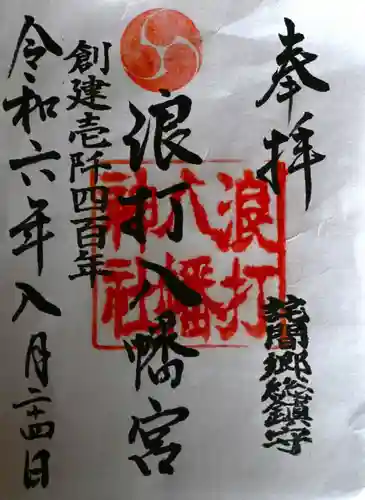 奉拝
苑間郷総鎮守
浪打八幡宮
浪打
八幡
神社
創建壱阡四百年
令和六年八月二十四日